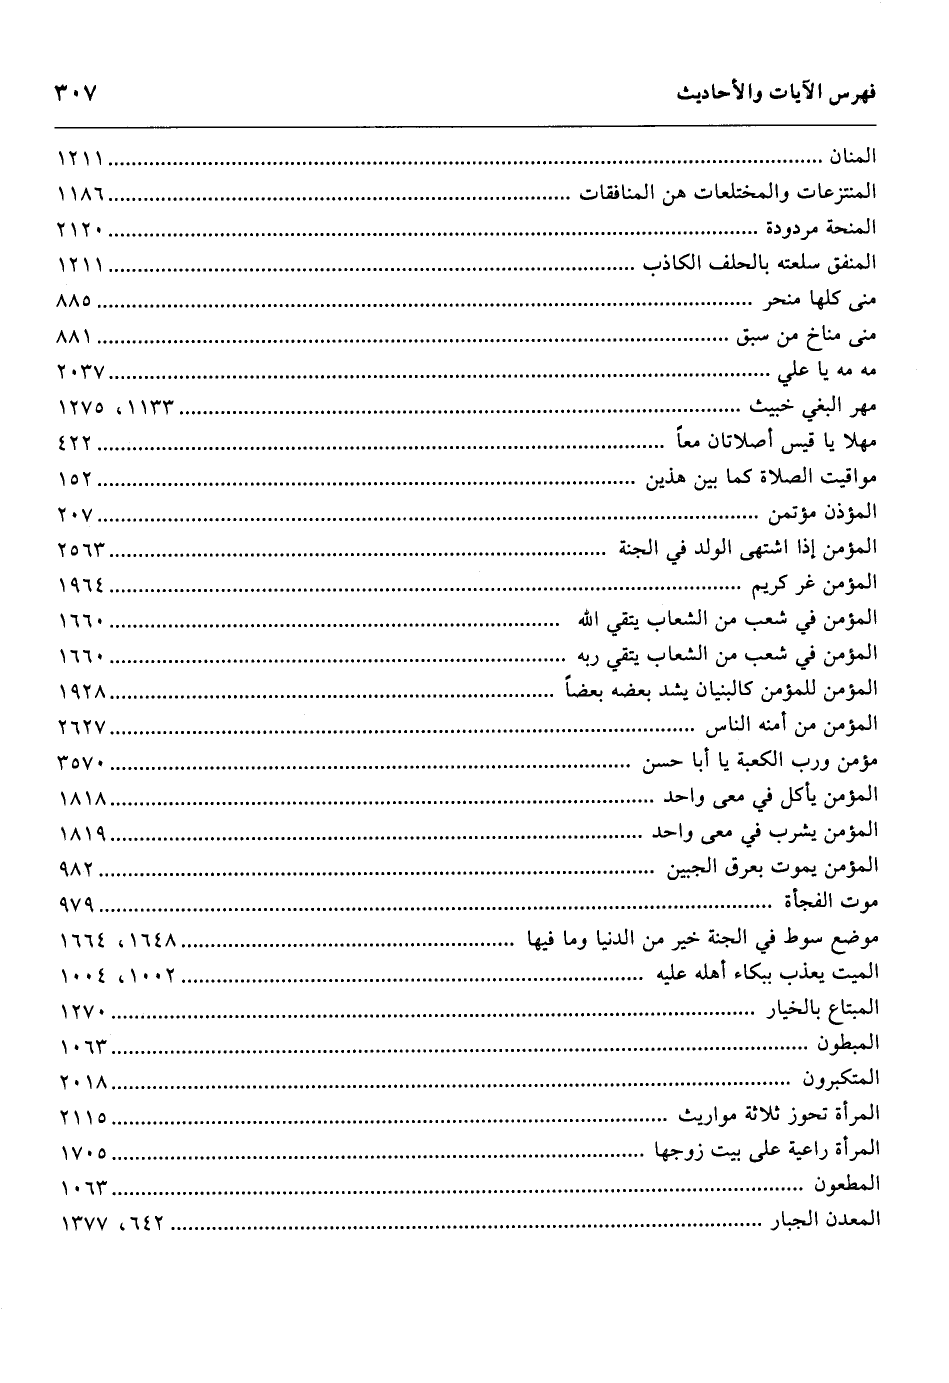 فهرس الآيات والأحاديث ٣٠٧
المنان ١٢١١
المنتزعات والمختلعات هن المنافقات ١١٨٦
المنحة مردودة ٢١٢٠
المنفق سلعته بالحلف الكاذب ١٢١١
منى كلها منحر ٨٨٥
منى مناخ من سبق ٨٨١
مه مه يا علي ٢٠٣٧
مهر البغي خبيث ١١٣٣، ١٢٧٥
مهلا يا قيس أصلاتان معاً ٤٢٢
مواقيت الصلاة كما بين هذين ١٥٢
المؤذن مؤتمن ٢٠٧
المؤمن إذا اشتهى الولد في الجنة ٢٥٦٣
المؤمن غر كريم ١٩٦٤
المؤمن في شعب من الشعاب يتقي الله ١٦٦٠
المؤمن في شعب من الشعاب يتقي ربه ١٦٦٠
المؤمن للمؤمن كالبنيان يشد بعضه بعضاً ١٩٢٨
المؤمن من أمنه الناس ٢٦٢٧
مؤمن ورب الكعبة يا أبا حسن ٣٥٧٠
المؤمن يأكل في معى واحد ١٨١٨
المؤمن يشرب في معى واحد ١٨١٩
المؤمن يموت بعرق الجبين ٩٨٢
موت الفجأة ٩٧٩
موضع سوط في الجنة خير من الدنيا وما فيها ١٦٤٨، ١٦٦٤
الميت يعذب ببكاء أهله عليه ١٠٠٢، ١٠٠٤
المبتاع بالخيار ١٢٧٠
المبطون ١٠٦٣
المتكبرون ٢٠١٨
المرأة تحوز ثلاثة مواريث ٢١١٥
المرأة راعية على بيت زوجها ١٧٠٥
المطعون ١٠٦٣
المعدن الجبار ٦٤٢، ١٣٧٧